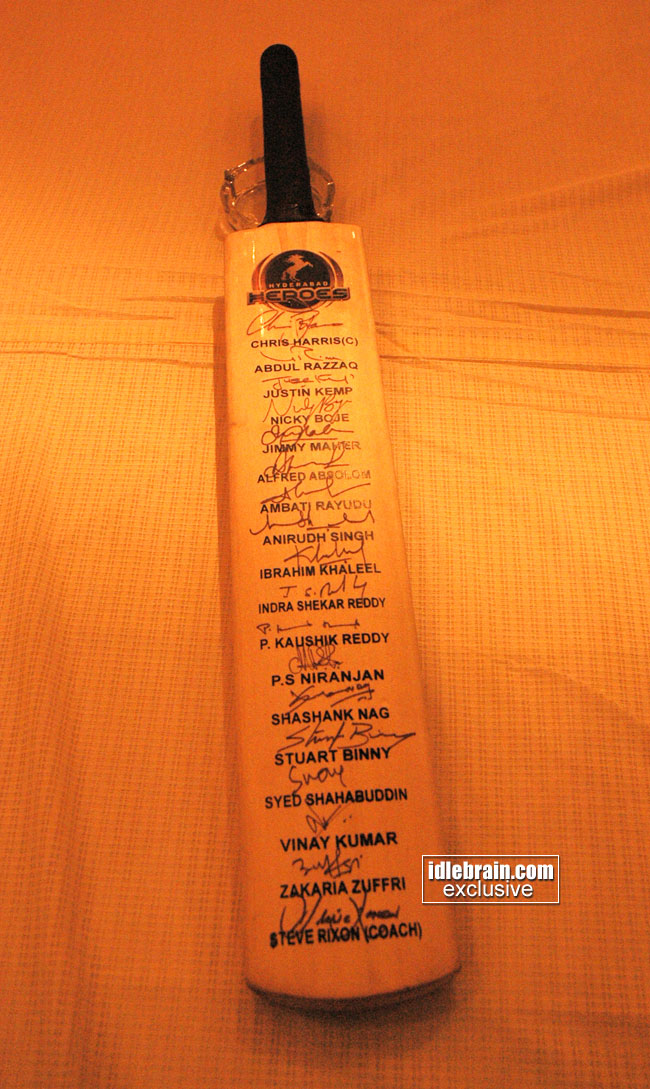 HYDERABAD
HEROES
CHRIS HARRIS(C)
ABDUL RAZZAQ
JUSTIN KEMP
NICKY BOJE
JIMMY MAHER
ALFRED ABSOLOM
AMBATI RAYUDU
ANIRUDH SINGH
Khaleel
IBRAHIM KHALEEL
INDRA SHEKAR REDDY
P. KAUSHIK REDDY
P.S NIRANJAN
SHASHANK NAG
Stuart Binny
STUART BINNY
SYED SHAHABUDDIN
VINAY KUMAR
ZAKARIA ZUFFRI
STEVE RIXON (COACH)
idlebrain.com
exclusive